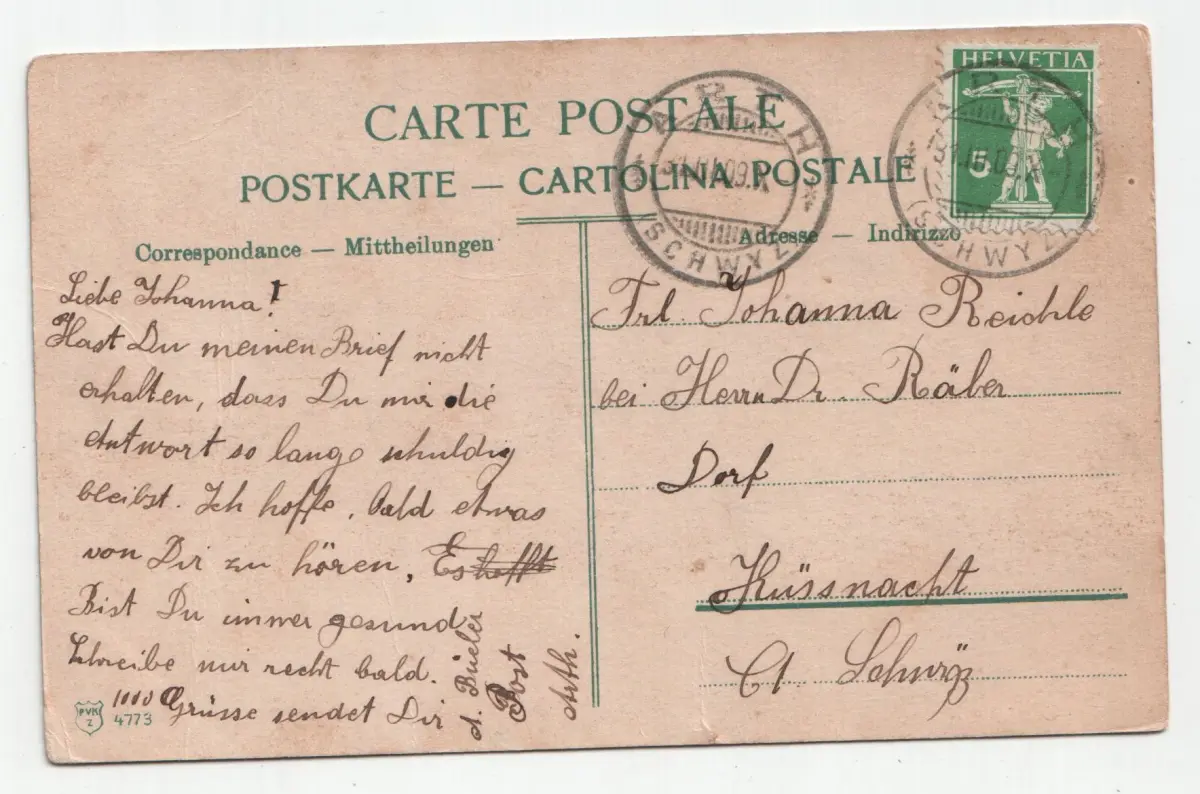 CARTE POSTALE
POSTKARTE — CARTOLINA POSTALE
Correspondance — Mittheilungen
Adresse — Indirizzo
HELVETIA
5
ARTH
(SCHWYZ)
ARTH
(SCHWYZ)
Liebe Johanna!
Hast Du meinen Brief nicht
erhalten, dass Du mir die
Antwort so lange schuldig
bleibst. Ich hoffe, bald etwas
von Dir zu hören. Es hofft
Bist Du immer gesund
Schreibe mir recht bald.
1000 Grüsse sendet Dir
A. Büeler
Post
Arth.
Frl. Johanna Reichle
bei Herrn Dr. Räber
Dorf
Küssnacht
Ct. Schwyz
PVK
Z
4773